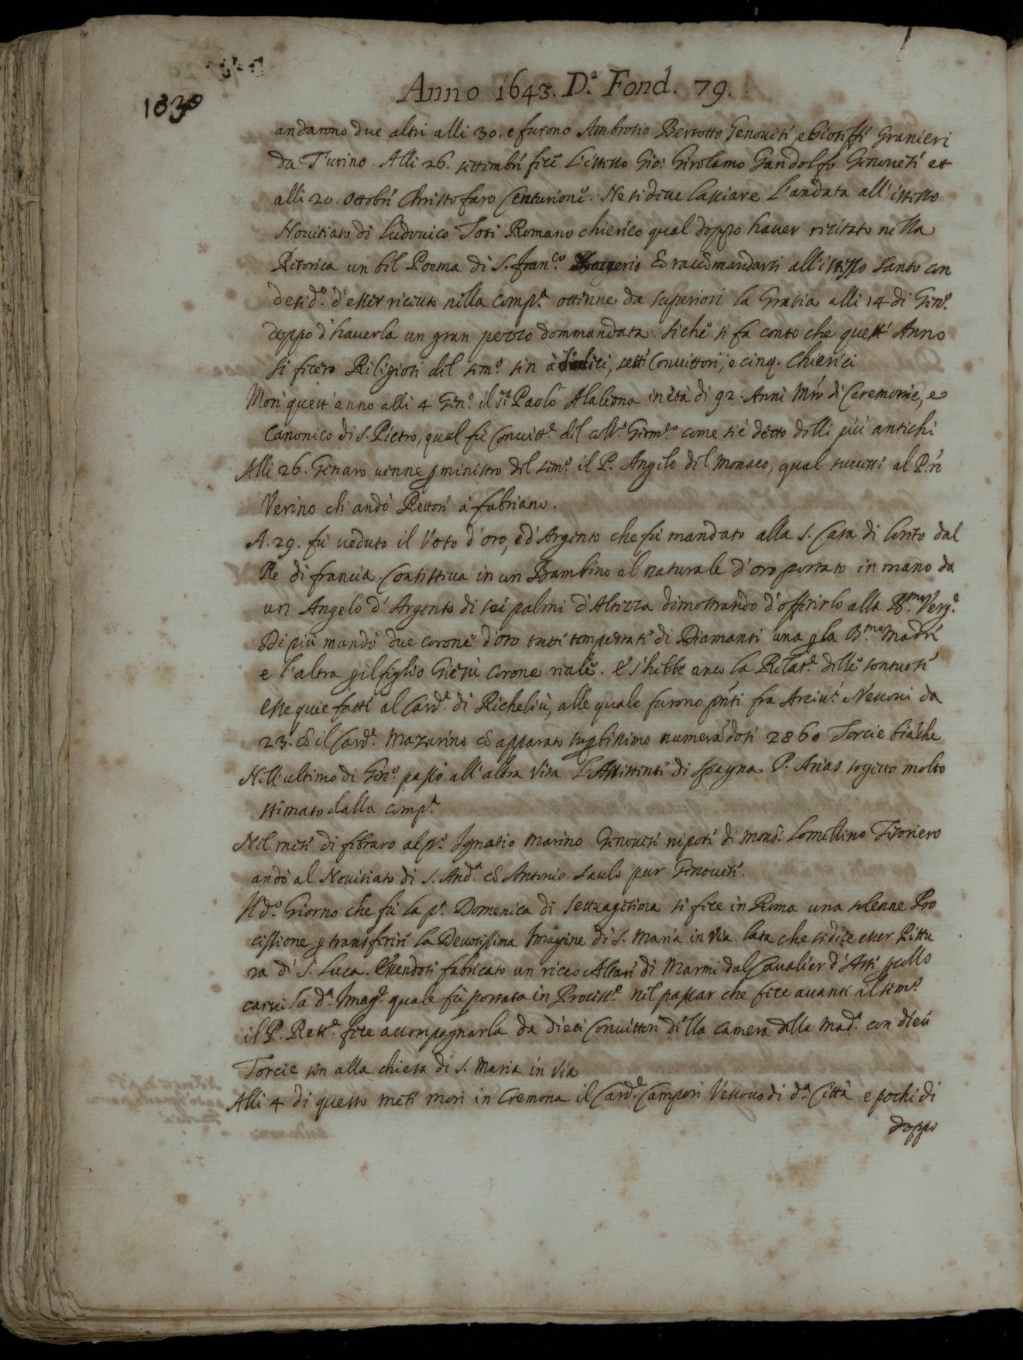 1830
Anno 1643. D.ª Fond. 79.
andarono due altri alli 30. e furono Ambrosio Berrotto Genovesi e Gioseffe Granieri
da Turino. Alli 26. settembre fece l'istesso Gio: Girolamo Gandolfo Genovese et
alli 20. Ottobre Christofaro Centurione. Ne si deve lasciare l'andata all'istesso
Novitiato di Ludovico Soti Romano chierico qual doppo haver recitato nella
Retorica un bel Poema di S. Fran.co Saverio et raccomandarsi all'istesso santo con
desid.º d'esser riceuto nella comp.ª ottenne da superiori la Gratia alli 14 di Gen.º
doppo d'haverla un gran pezzo dommandata. Siche si fa conto che quest'Anno
si ficero Religiosi del sem.º sin à dodeci, sette Convittori, e cinq. Chierici
Morì quest'anno alli 4 Gen.º il S.r Paolo Alaleona in età di 92. Anni Mro di Ceremonie, e
Canonico di S. Pietro, qual fù Convitt.e del coll.º Germ.co come si è detto delli più antichi
Alli 26. Genaro venne p ministro del sem.º il P. Angelo del Monaco, qual successi al P.re
Verino ch'andò Rettore à Fabriano.
A. 29. fù veduto il Voto d'oro, ed'Argento che fù mandato alla S. Casa di Loreto dal
Re di francia. Consisteva in un Bambino al naturale d'oro portato in mano da
un Angelo d'Argento di sei palmi d'Altezza dimostrando d'offerirlo alla B.ma Verg.e
Di più mandò due corone d'oro tutte tempestate di Diamanti una p la B.ma Madre
e l'altra p il figlio Giesù corone reale. E s'hebbe anco la Relat.e delle sontuose
essequie fatte al Card.e di Richeliù, alle quale furono pñti fra Arcive. e Vescovi da
23. cō il Card.e Mazarino cō apparato supbissimo numerādosi 2860 Torcie biāche
Nell'ultimo di Gen.º passò all'altra vita l'Assistente di Spagna P. Arias sogetto molto
stimato dalla comp.ª
Nel mese di febraro al p.º Ignatio Marino Genovese nepote di Mons.r Lomellino Tesoriero
andò al Novitiato di S. And.ª cō Antonio Sauli pur Genovese.
Il d.º Giorno che fù la p.ª Domenica di Settuagesima si fece in Roma una solenne Pro
cissione p transferire la Devotissima Imagine di S. Maria in Via lata che si dice esser Pittu
ra di S. Luca. Essendosi fabricato un ricco Altare di Marmi dal Cavalier d'Asti p collo
carvi la d.ª Imag.e quale fù portata in Prociss.e nel passar che fece avanti il sem.º
il P. Rett.e fece accompagnarla da dieci Convittori della camera della Mad.ª con dieci
Torcie sin alla chiesa di S. Maria in Via
Alli 4 di questo mese morì in Cremona il Card.e Campori Vescovo di d.ª Città e pochi dì
doppo